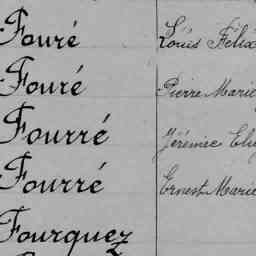 Fouré Louis Félix
Fouré Pierre Marie
Fourré Jérémie
Fourré Ernest Marie
Fourquez